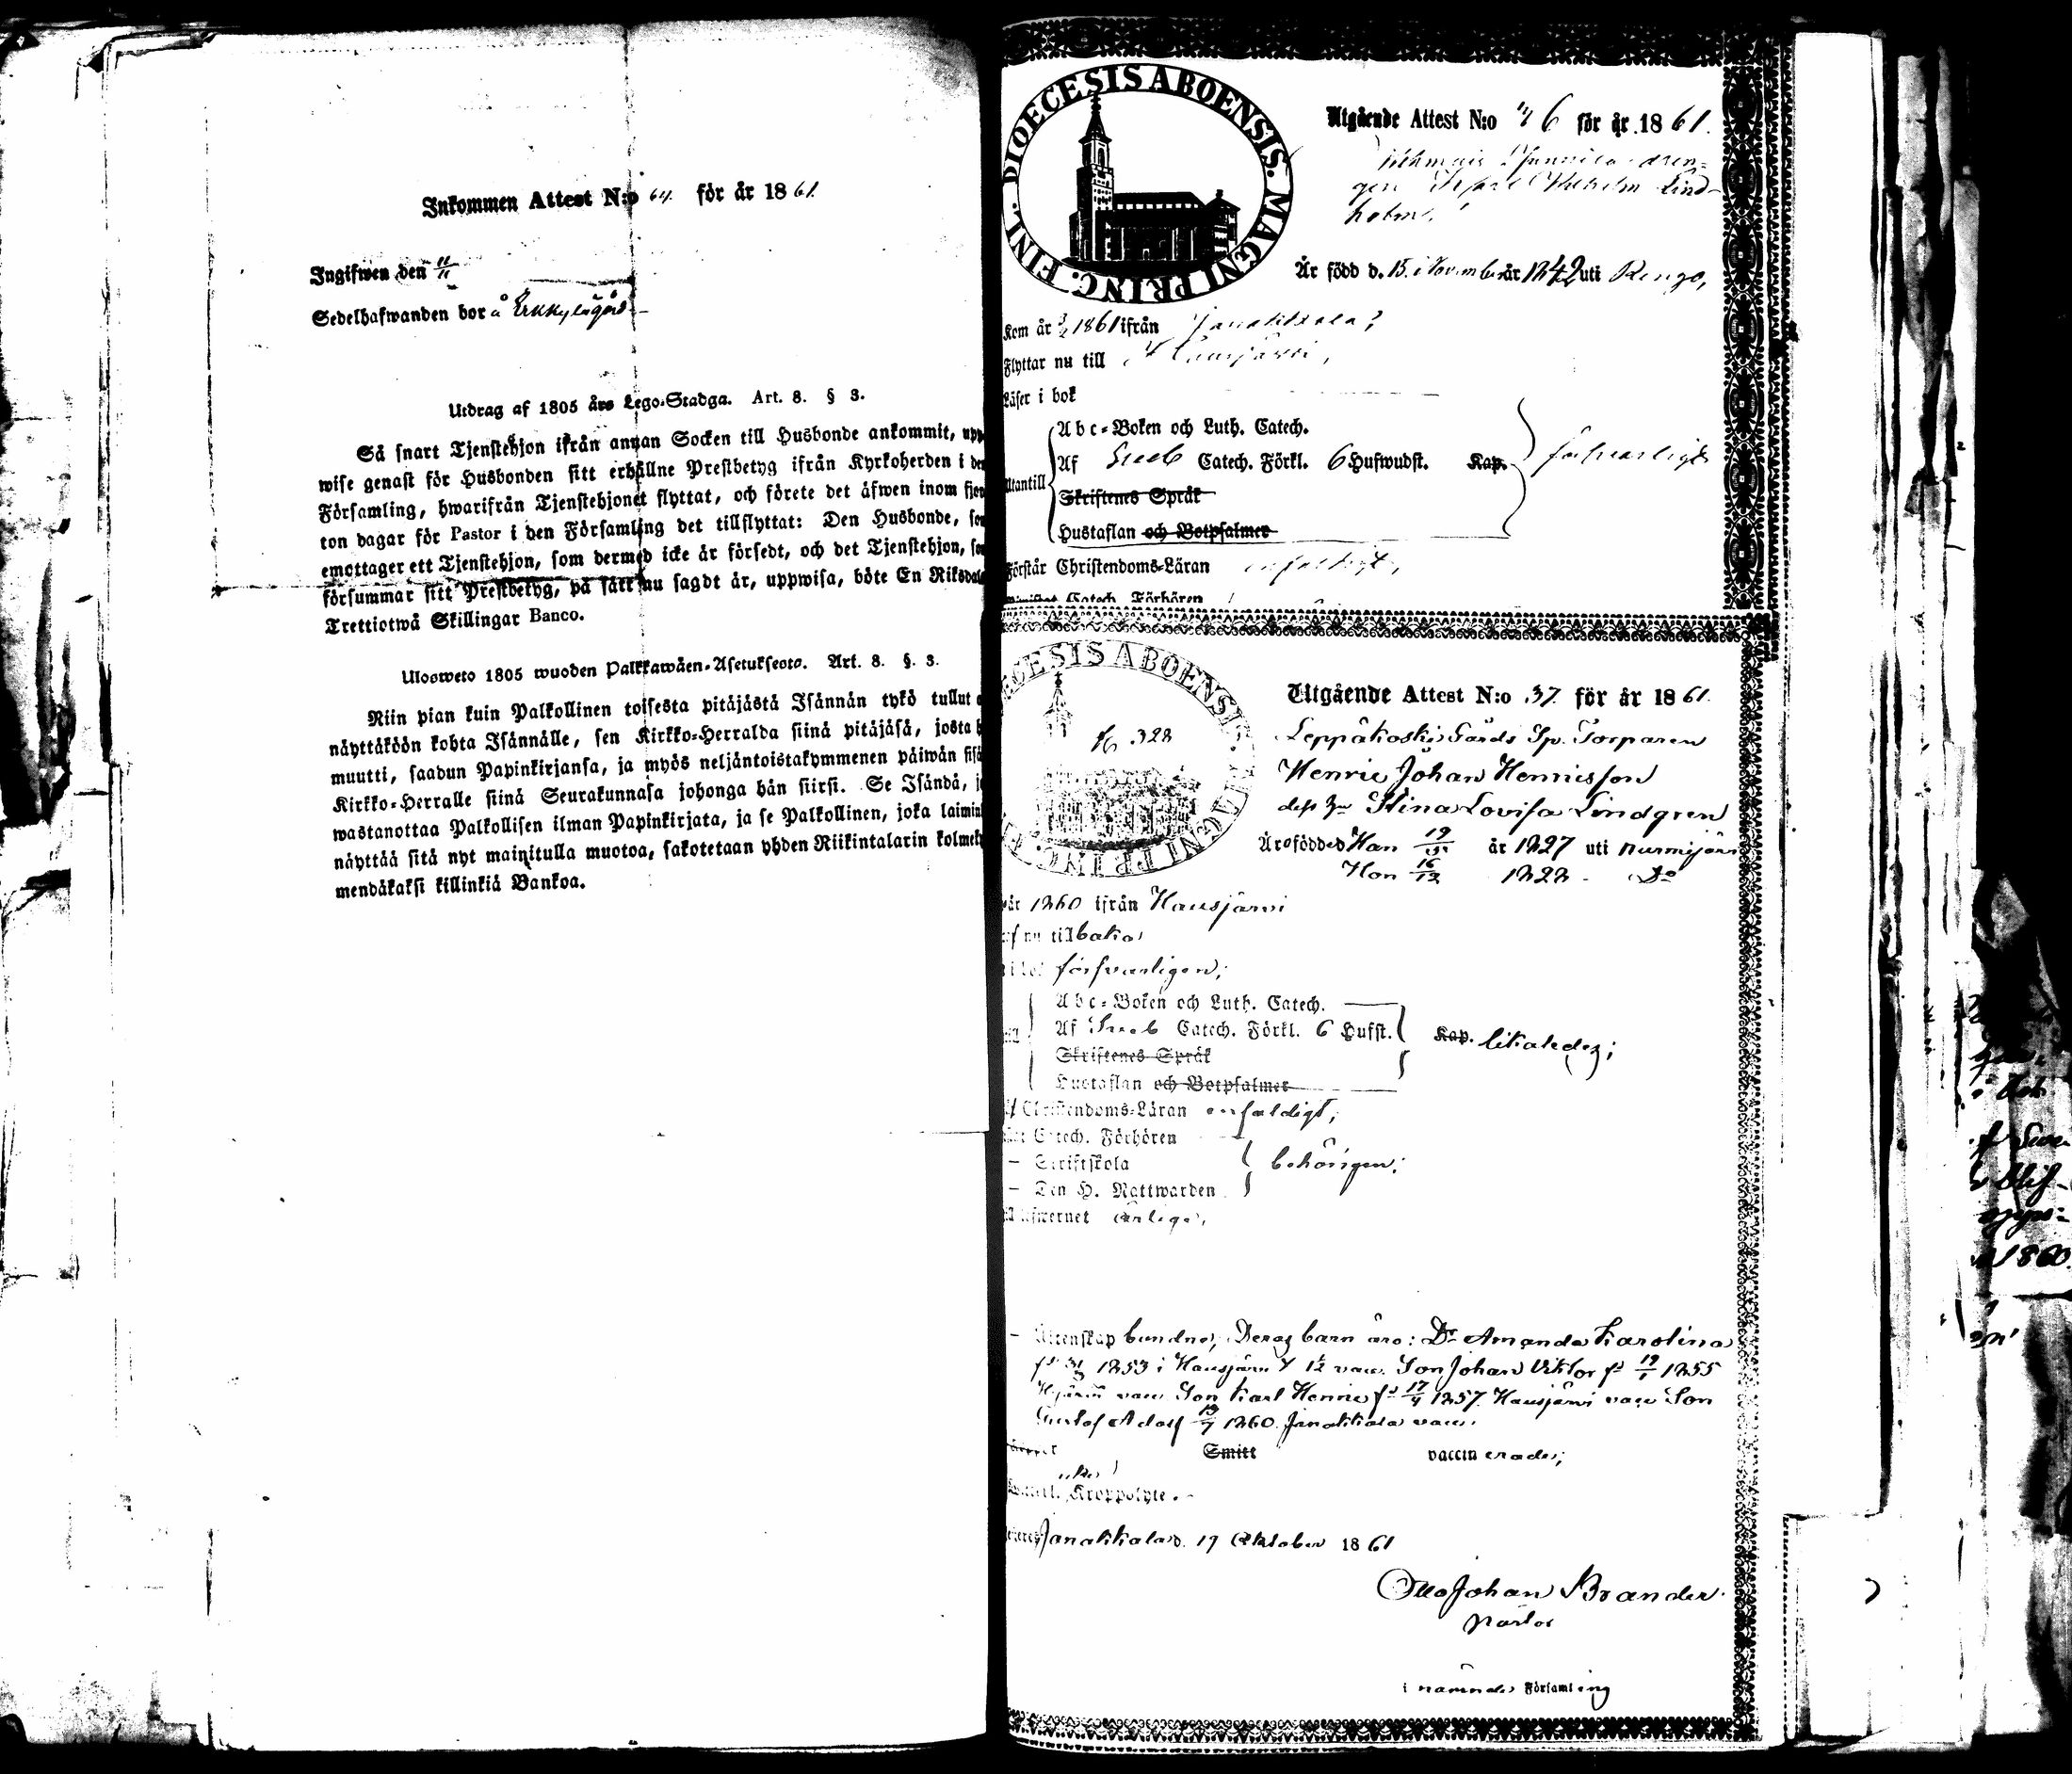 Inkommen Attest N:o 64. för år 1861.
Ingifwen den 11/11
Sedelhafwanden bor å Erkkylägård
Utdrag af 1805 års Lego-Stadga. Art. 8. § 3.
Så snart Tjenstehjon ifrån annan Socken till Husbonde ankommit, upp
wise genast för Husbonden sitt erhållne Prestbetyg ifrån Kyrkoherden i den
Församling, hwarifrån Tjenstehjonet flyttat, och förete det äfwen inom fjor
ton dagar för Pastor i den Församling det tillflyttat: Den Husbonde, som
emottager ett Tjenstehjon, som dermed icke är försedt, och det Tjenstehjon, som
försummar sitt Prestbetyg, på sätt nu sagdt är, uppwisa, böte En Riksdal
Trettiotwå Skillingar Banco.
Ulosweto 1805 wuoden Palkkawäen-Asetuksesta. Art. 8. §. 3.
Niin pian kuin Palkollinen toisesta pitäjästä Isännän tykö tullut
näyttäköön kohta Isännälle, sen Kirkko-Herralda siinä pitäjäsä, josta h
muutti, saadun Papinkirjansa, ja myös neljäntoistakymmenen päiwän sisä
Kirkko-Herralle siinä Seurakunnasa johonga hän siirsi. Se Isändä, j
wastanottaa Palkollisen ilman Papinkirjata, ja se Palkollinen, joka laimin
näyttää sitä nyt mainitulla muotoa, sakotetaan yhden Riikintalarin kolmek
mendäkaksi killinkiä Bankoa.
DIOECESIS ABOENSIS. MAGNI PRINC. FINL.
Utgående Attest N:o 46 för år 1861.
gen Wilhelm Lind-
holm,
Är född d. 15. November år 1842 uti Rengo,
Kom år 1861 ifrån Janakkala;
Flyttar nu till Hausjärvi,
Läser i bok
Abc-Boken och Luth. Catech.
Utantill Af Sveb Catech. Förkl. 6 Hufwudst. Kap. försvarligt
Skriftenes Språk
Hustaflan och Botpsalmer
Förstår Christendoms-Läran enfaldigt,
Catech. Förhören
ECESIS ABOENSIS. MAGNI PRINC. F
328
Utgående Attest N:o 37. för år 1861.
Leppäkoski Gårds Sp. Torparen
Henric Johan Henricsson
dess hu Stina Lovisa Lindgren
Äro födde Han 19 år 1827 uti Nurmijärvi
Hon 16/12 1828 - Do
år 1860 ifrån Hausjärvi
nu tillbaka
försvarligen;
Abc-Boken och Luth. Catech.
Af Sveb Catech. Förkl. 6 Hufst. Kap. likaledes;
Skriftenes Språk
Hustaflan och Botpsalmer
Christendoms-Läran enfaldigt;
Catech. Förhören
— Skriftskola behörigen;
— Den H. Nattwarden
Lefwernet ärliga,
— Äktenskap bundne; Deras barn äro: Dr Amanda Karolina
1853 i Hausjärvi vacc. Son Johan Viktor fd 19/1 1855
Hjärvi vacc. Son Karl Henric fd 17/4 1857. Hausjärvi vacc Son
Gustaf Adolf 13/7 1860. Janakkala vacc.
Smitt vaccinerade;
Kroppslyte.
Janakkala d. 19 Oktober 1861
Otto Johan Brander
Pastor
i nämnde Församling